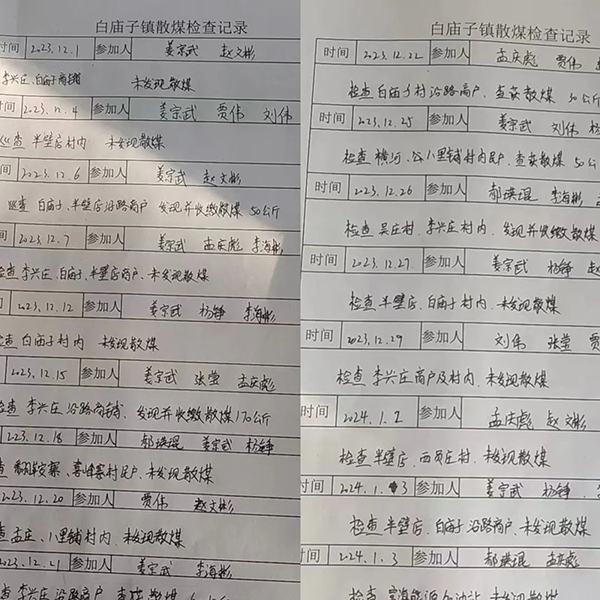 白庙子镇散煤检查记录
时间 2023.12.1 参加人 姜宗武 赵文彬
李兴庄、白庙子商铺 未发现散煤
时间 2023.12.4 参加人 姜宗武 贾伟 刘伟
巡查 半壁店村内 未发现散煤
2023.12.6 参加人 姜宗武 赵文彬
巡查 白庙子、半壁店沿路商户 发现并收缴散煤 50公斤
时间 2023.12.7 参加人 姜宗武 孟庆彪 李海彬
检查 李兴庄、白庙子、半壁店商户、未发现散煤
2023.12.12 参加人 姜宗武 杨铮 李海彬
检查 白庙子村内 未发现散煤
2023.12.15 参加人 姜宗武 张莹 孟庆彪
检查 李兴庄 沿路商铺、发现并收缴散煤170公斤
2023.12.18 参加人 郝瑛琨 姜宗武 杨铮
村民户、未发现散煤
2023.12.20 参加人 贾伟 赵文彬
孟庄、八里铺村内、未发现散煤
2023.12.21 参加人 姜宗武 李海彬
李兴庄 沿路商户 查获散煤
白庙子镇散煤检查记录
时间 2023.12.22 参加人 孟庆彪 贾伟
检查 白庙子村 沿路商户、查获散煤 50公斤
时间 2023.12.25 参加人 姜宗武 刘伟 杨
检查 横河、八里铺村内民户、查获散煤 50公
时间 2023.12.26 参加人 郝瑛琨 李海彬
检查 吴庄村、李兴庄村内、发现并收缴散煤
时间 2023.12.27 参加人 姜宗武 杨铮 赵
检查 半壁店、白庙子村内、未发现散煤
时间 2023.12.29 参加人 刘伟 张莹 贾
检查 李兴庄商户及村内、未发现散煤
时间 2024.1.2 参加人 孟庆彪 赵文彬
检查 半壁店、西贾庄村、未发现散煤
时间 2024.1.3 参加人 姜宗武 杨铮
检查 半壁店、白庙子沿路商户、未发现散煤
时间 2024.1.3 参加人 郝瑛琨 孟庆彪
检查 加油站 未发现散煤